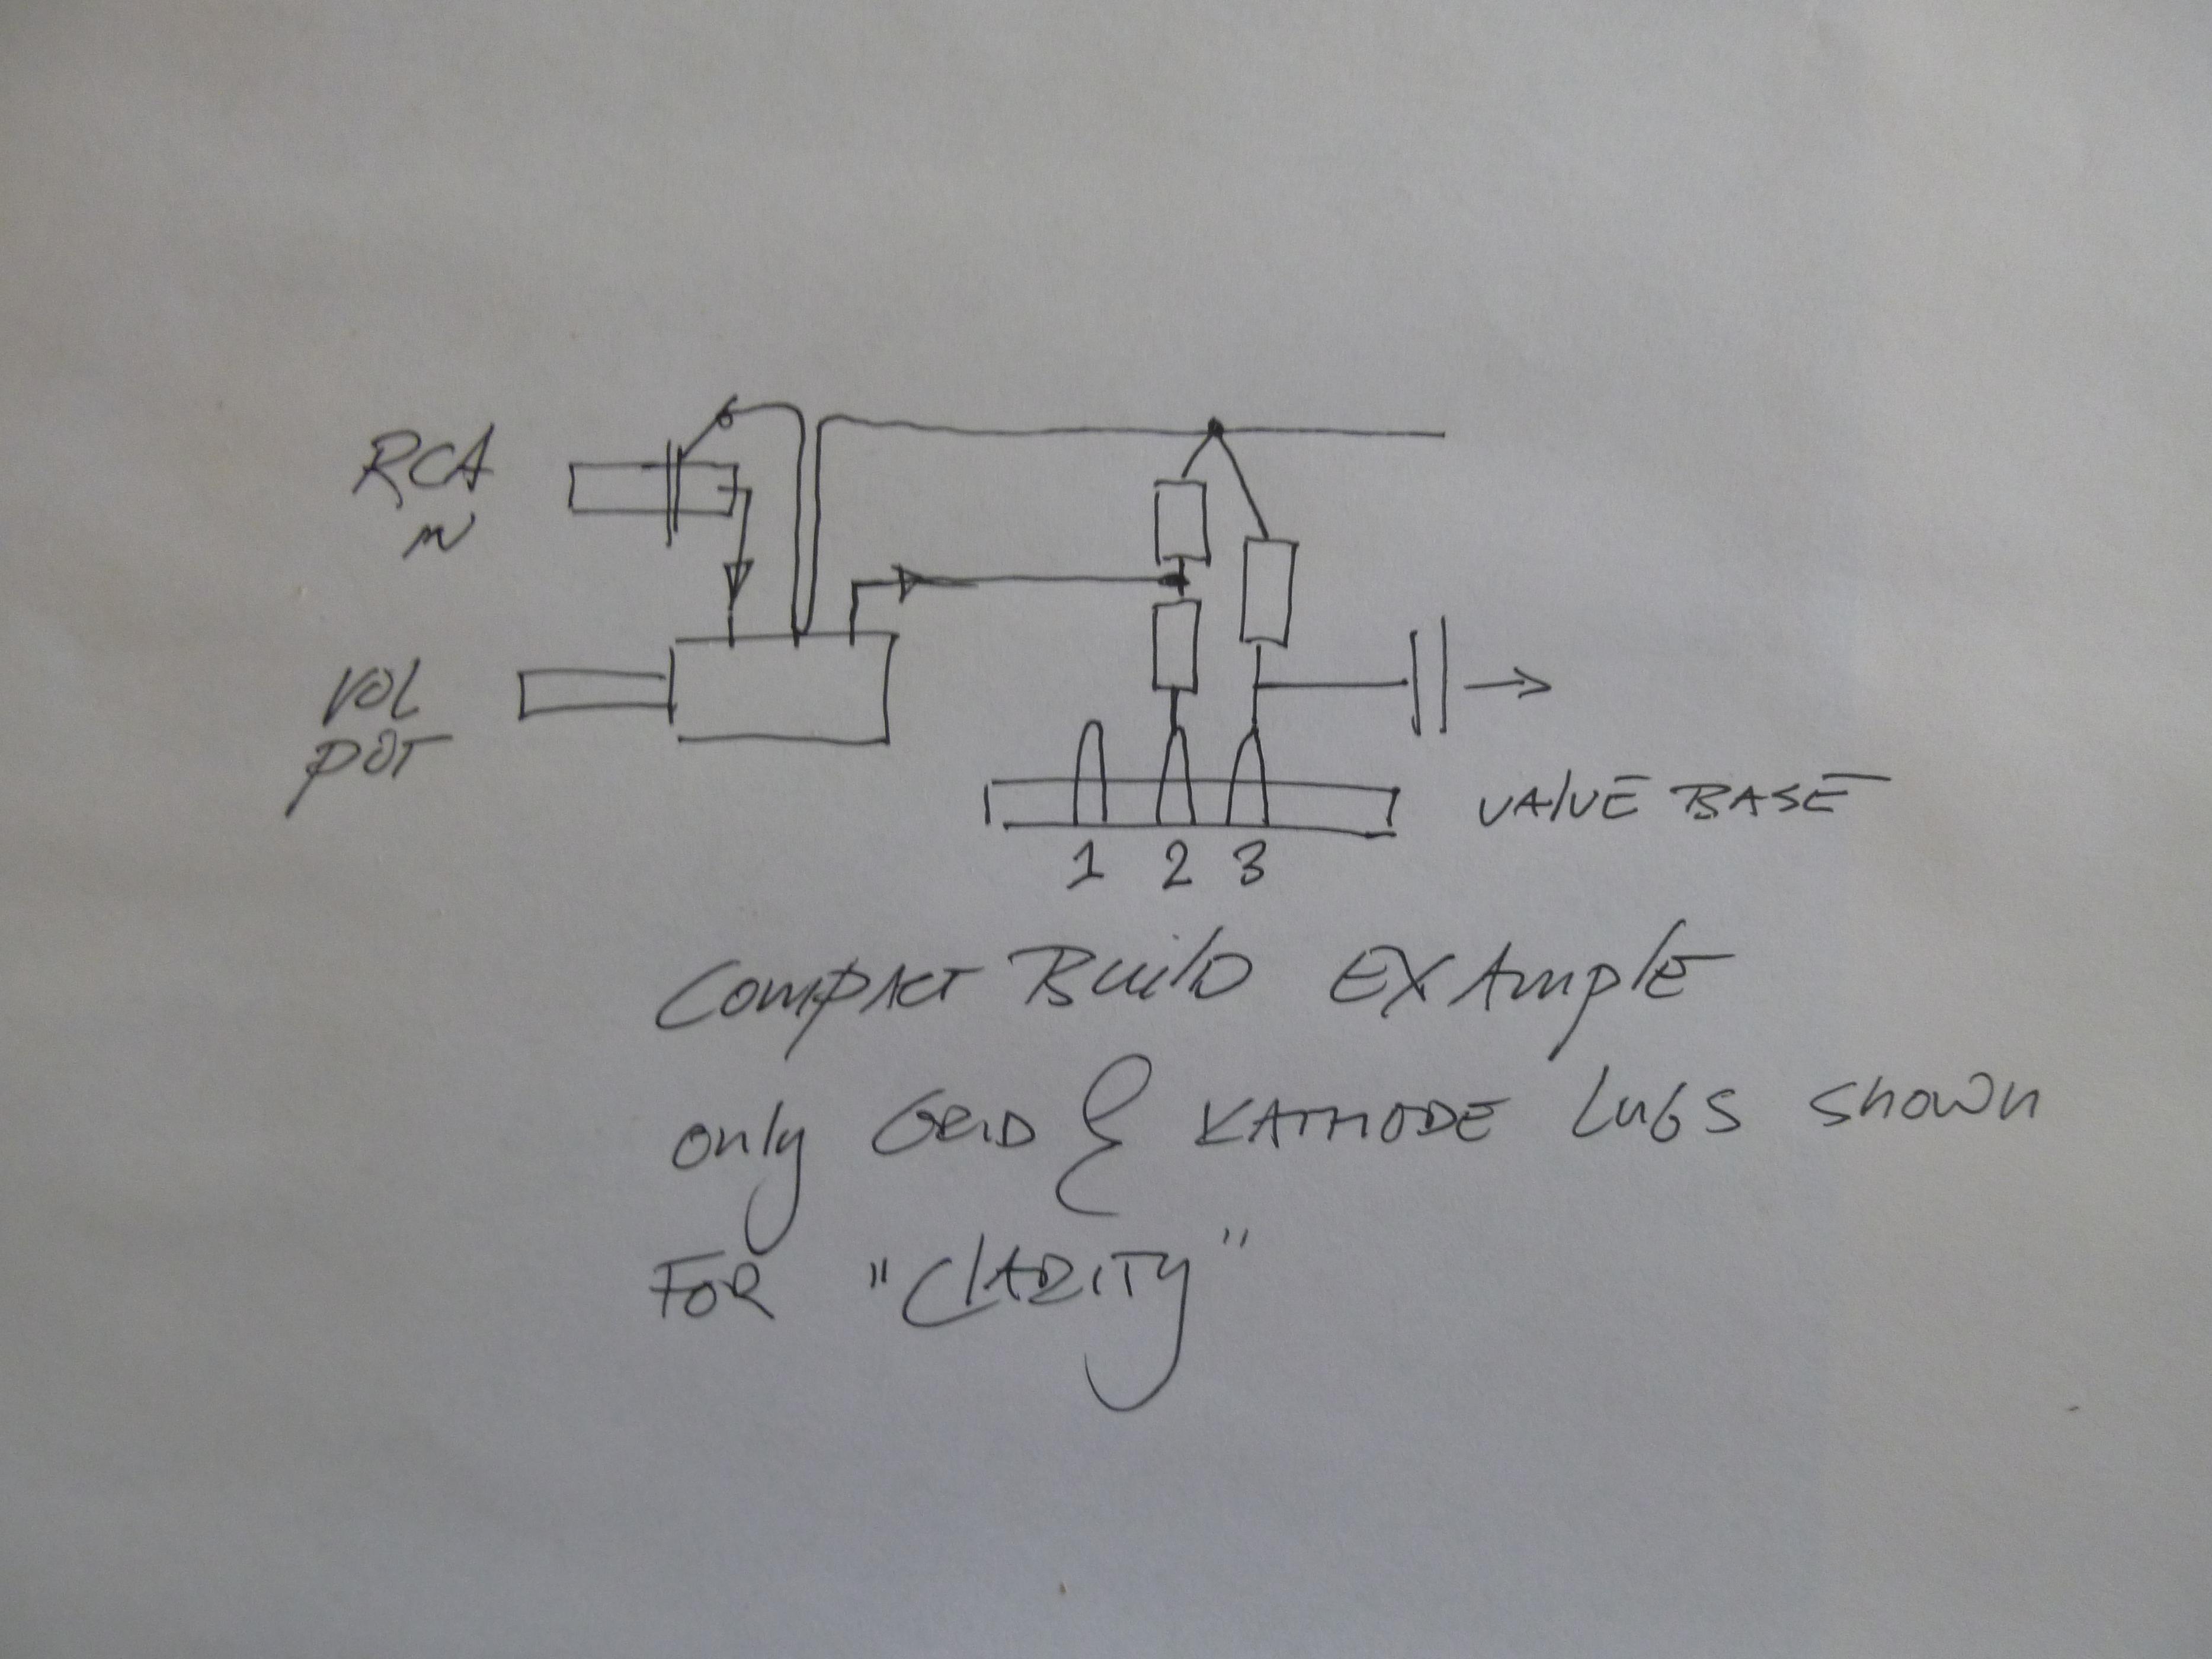 RCA
IN
VOL
POT
VALVE BASE
1 2 3
COMPACT BUILD EXAMPLE
only GRID & KATHODE LUGS shown
FOR "CLARITY"